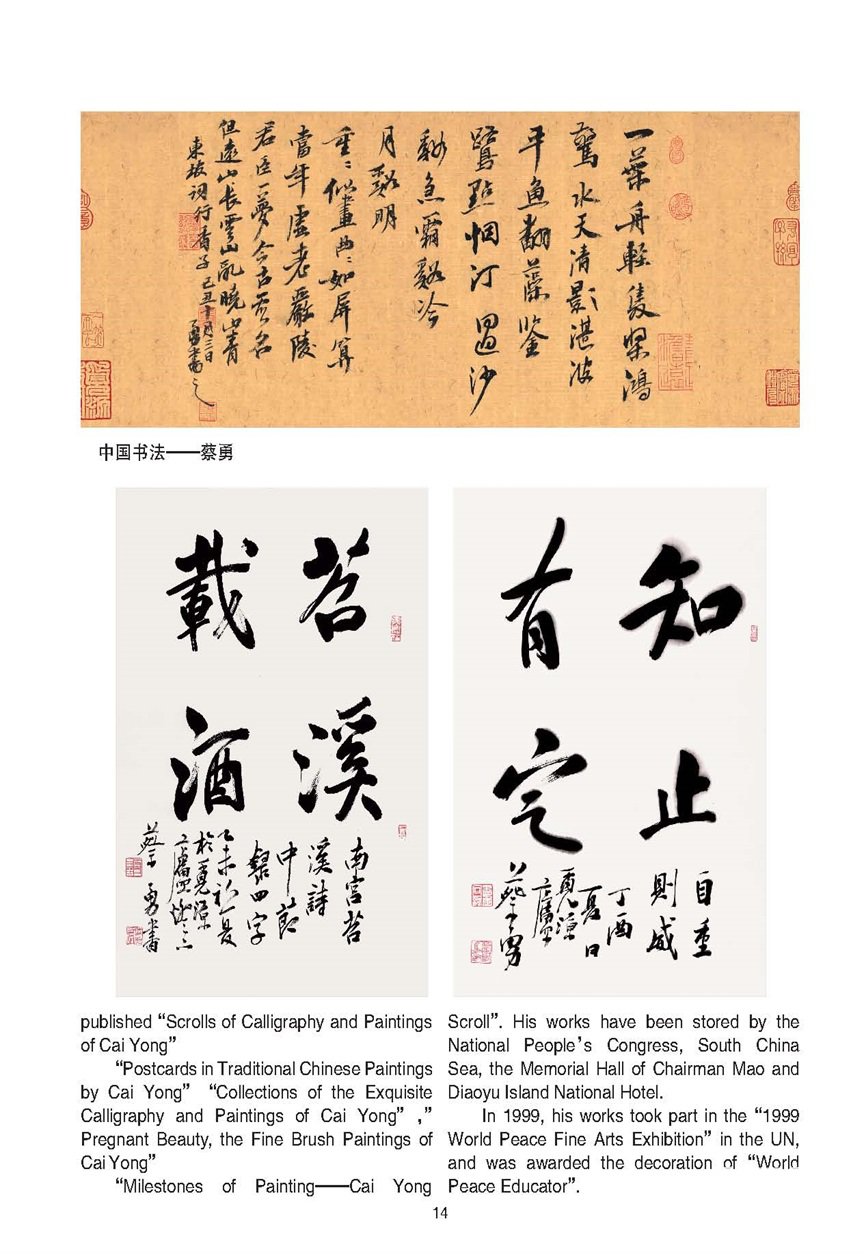 一葉舟輕雙槳鴻
驚水天清影湛波
平魚翻藻鑒
鷺點烟汀過沙
谿急霜谿冷
月谿明
重重似畫曲曲如屏算
當年虛老嚴陵
君臣一夢今古空名
但遠山長雲山亂曉山青
東坡詞行香子己丑十月三日
勇書之
中国书法——蔡勇
苕溪
載酒
南宮苕
溪詩
中節
錄四字
乙未初夏
蔡勇書
知止
有定
自重
則威
丁酉
夏日
蔡勇
published “Scrolls of Calligraphy and Paintings
of Cai Yong”
“Postcards in Traditional Chinese Paintings
by Cai Yong” “Collections of the Exquisite
Calligraphy and Paintings of Cai Yong”,”
Pregnant Beauty, the Fine Brush Paintings of
Cai Yong”
“Milestones of Painting——Cai Yong
Scroll”. His works have been stored by the
National People’s Congress, South China
Sea, the Memorial Hall of Chairman Mao and
Diaoyu Island National Hotel.
In 1999, his works took part in the “1999
World Peace Fine Arts Exhibition” in the UN,
and was awarded the decoration of “World
Peace Educator”.
14